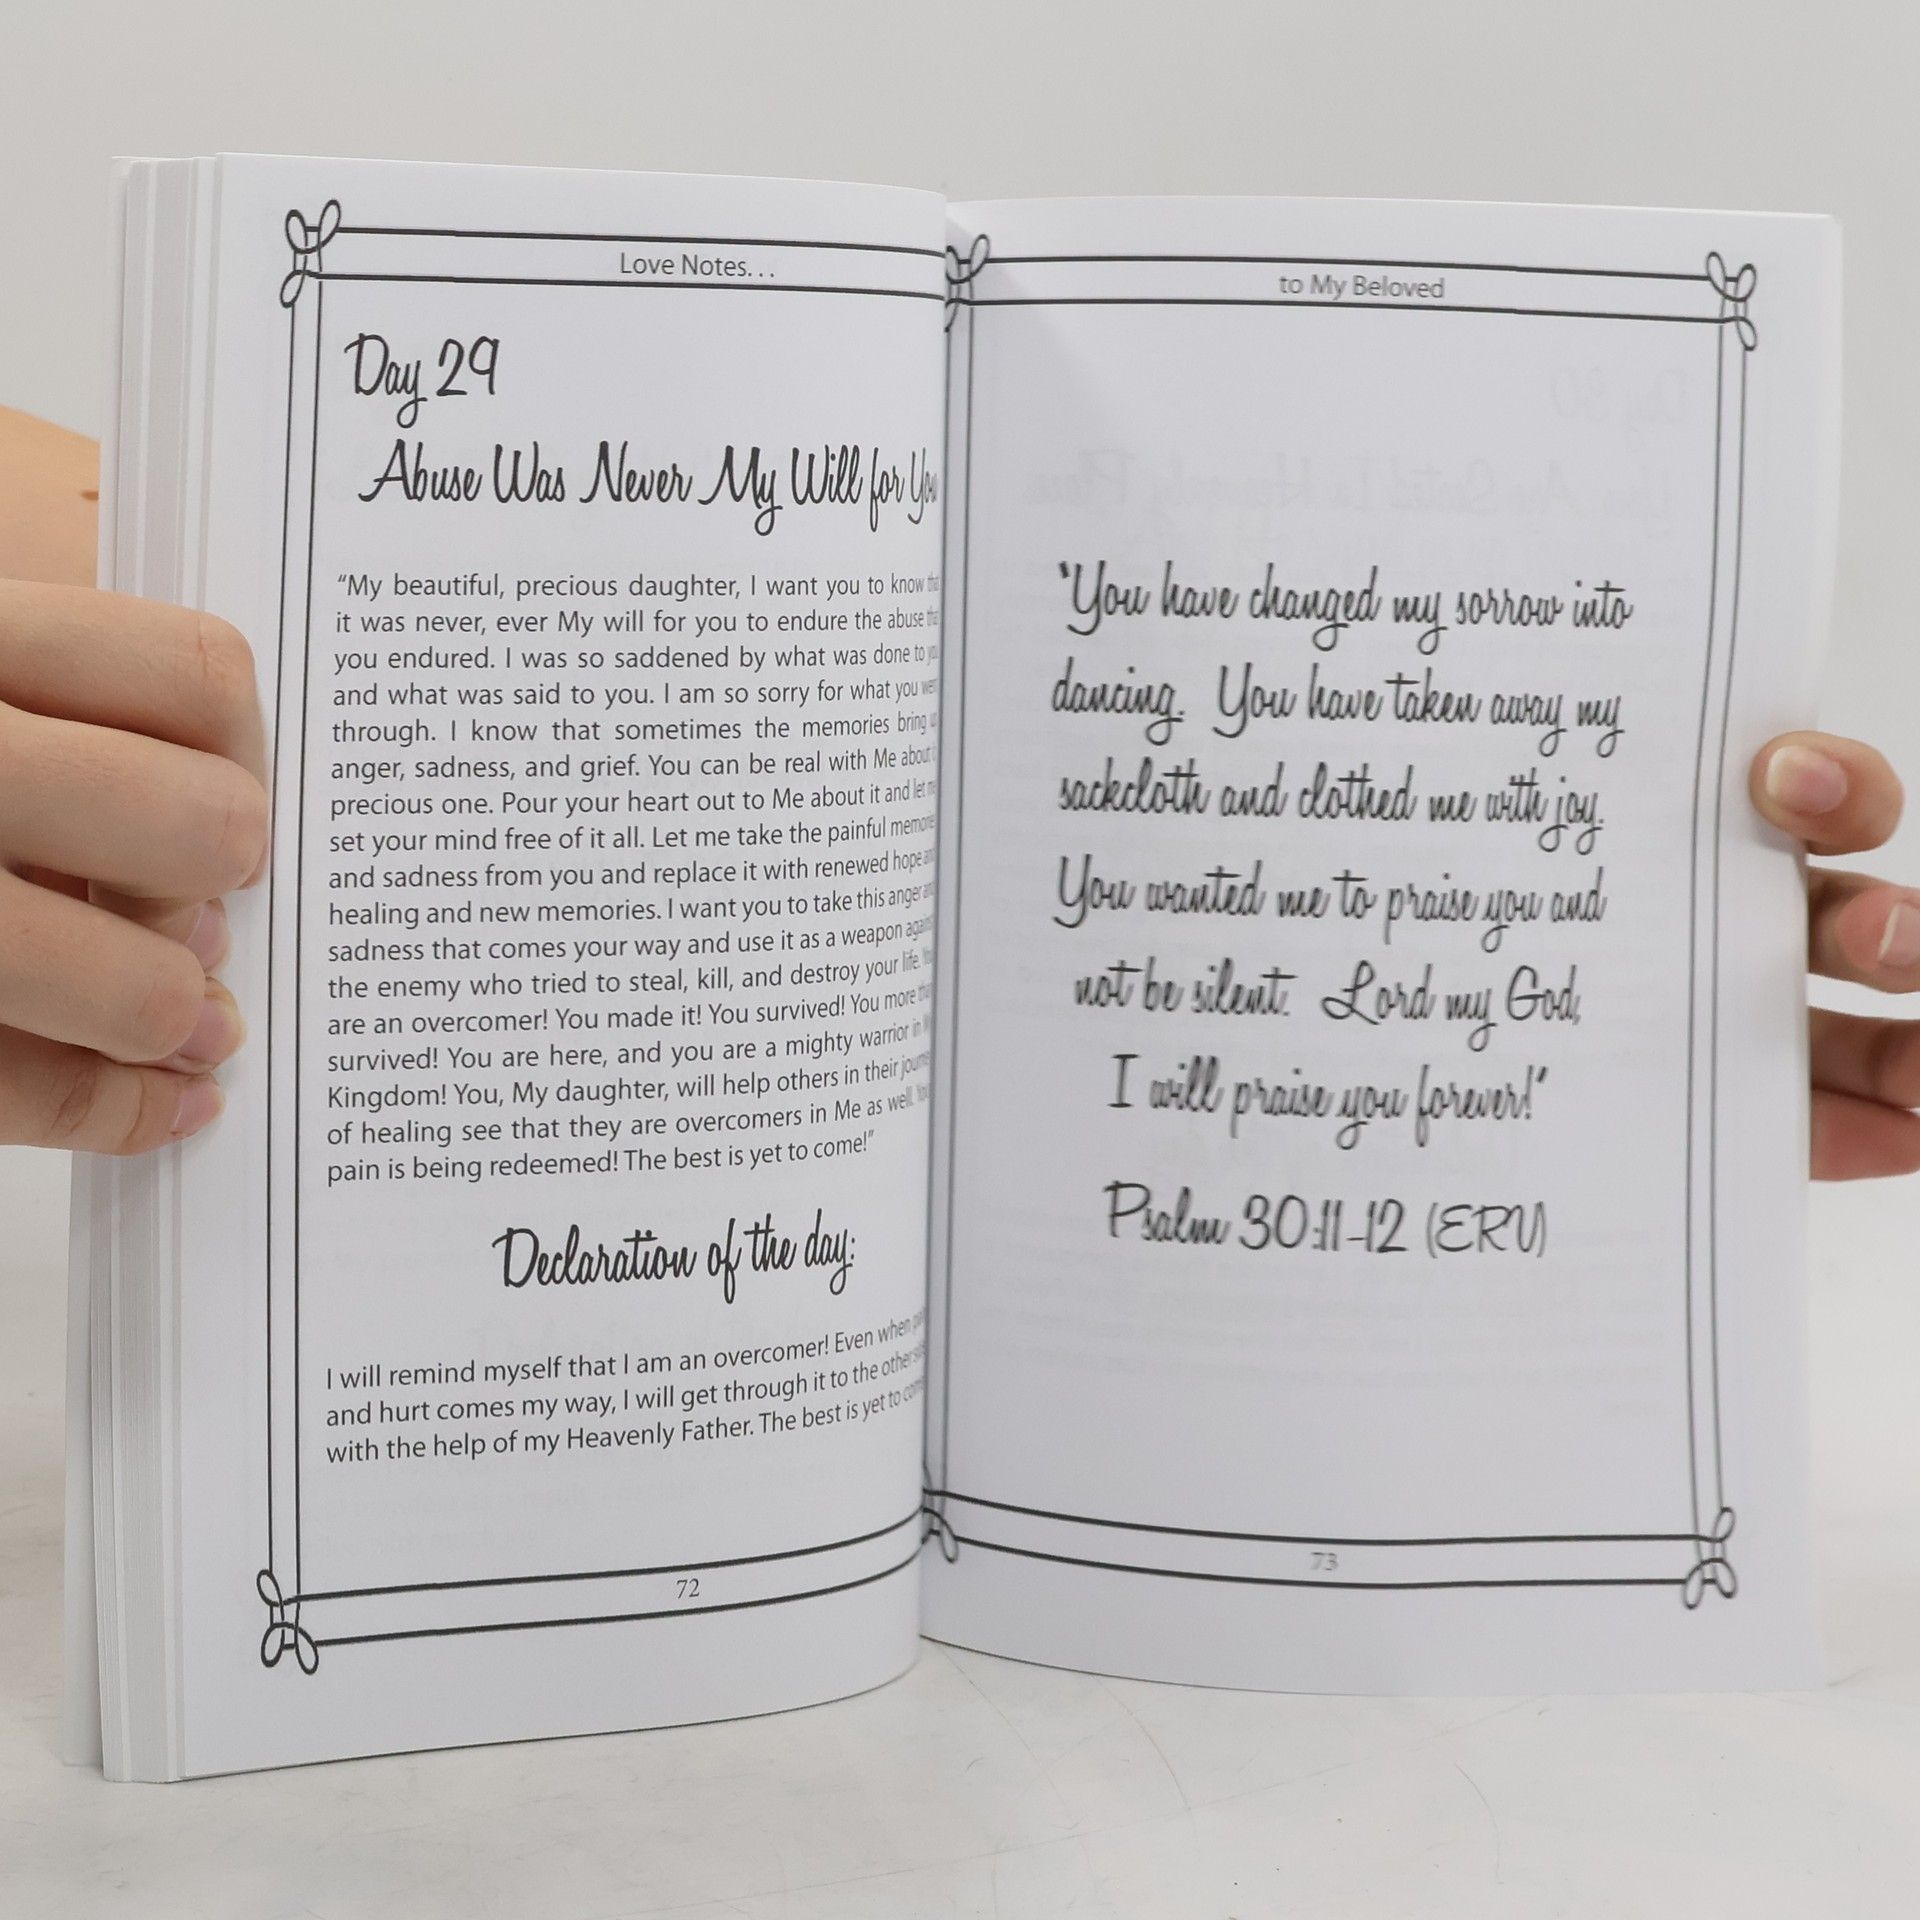 Love Notes...
Day 29
Abuse Was Never My Will for You
"My beautiful, precious daughter, I want you to know that
it was never, ever My will for you to endure the abuse that
you endured. I was so saddened by what was done to you
and what was said to you. I am so sorry for what you went
through. I know that sometimes the memories bring up
anger, sadness, and grief. You can be real with Me about
precious one. Pour your heart out to Me about it and let me
set your mind free of it all. Let me take the painful
and sadness from you and replace it with renewed hope and
healing and new memories. I want you to take this anger and
sadness that comes your way and use it as a weapon against
the enemy who tried to steal, kill, and destroy your life. You
are an overcomer! You made it! You survived! You more than
survived! You are here, and you are a mighty warrior in
Kingdom! You, My daughter, will help others in their
of healing see that they are overcomers in Me as well.
pain is being redeemed! The best is yet to come!"
Declaration of the day:
I will remind myself that I am an overcomer! Even when
and hurt comes my way, I will get through it to the other
with the help of my Heavenly Father. The best is yet to
72
to My Beloved
"You have changed my sorrow into
dancing. You have taken away my
sackcloth and clothed me with joy.
You wanted me to praise you and
not be silent. Lord my God,
I will praise you forever!"
Psalm 30:11-12 (ERV)
73